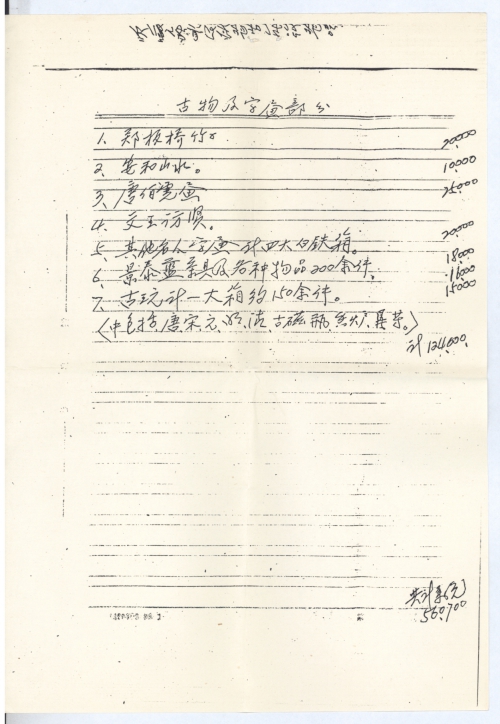 古物及字画部分
1、郑板桥竹 20,000
2、 和山水。 10,000
3、唐伯虎画 25,000
4、文王访贤。 20,000
5、其他名人字画计四大白铁箱。 18,000
6、景泰蓝 具及各种物品200余件。 16,000
7、古玩计一大箱约150余件。 15,000
(中包括唐宋元、明、清、古磁瓶、 炉、 等。)
计124,000.
共计
560,700